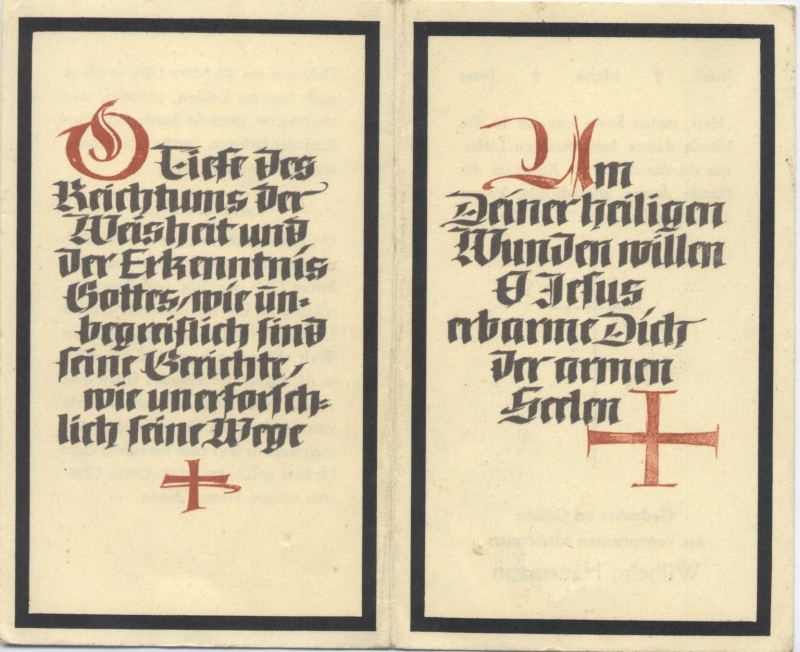 O Tiefe des
Reichtums der
Weisheit und
der Erkenntnis
Gottes, wie un-
begreiflich sind
seine Gerichte,
wie unerforsch-
lich seine Wege
Um
Deiner heiligen
Wunden willen
O Jesus
erbarme Dich
der armen
Seelen